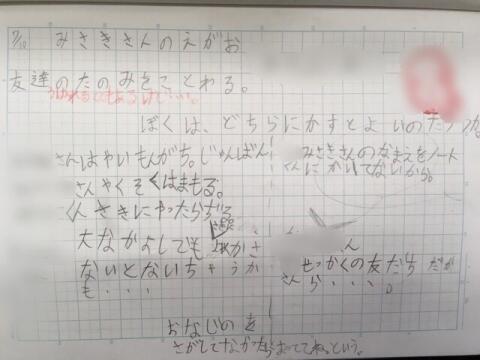 9/10 みさきさんのえがお
友達のたのみをことわる。
ぼくは、どちらにかすとよいのだろうか。
さんはやいもんがち。じゅんばん
さんやくそくはまもる。
くんさきにやったらずる
大なかよしでも かさ
ないとないちゃうか
も・・・
みさきさんのなまえをノート
さんにかいてないから。
ん
せっかくの友だちだか
さんら・・・。
おなじのを
さがしてなかったらまっててねという。